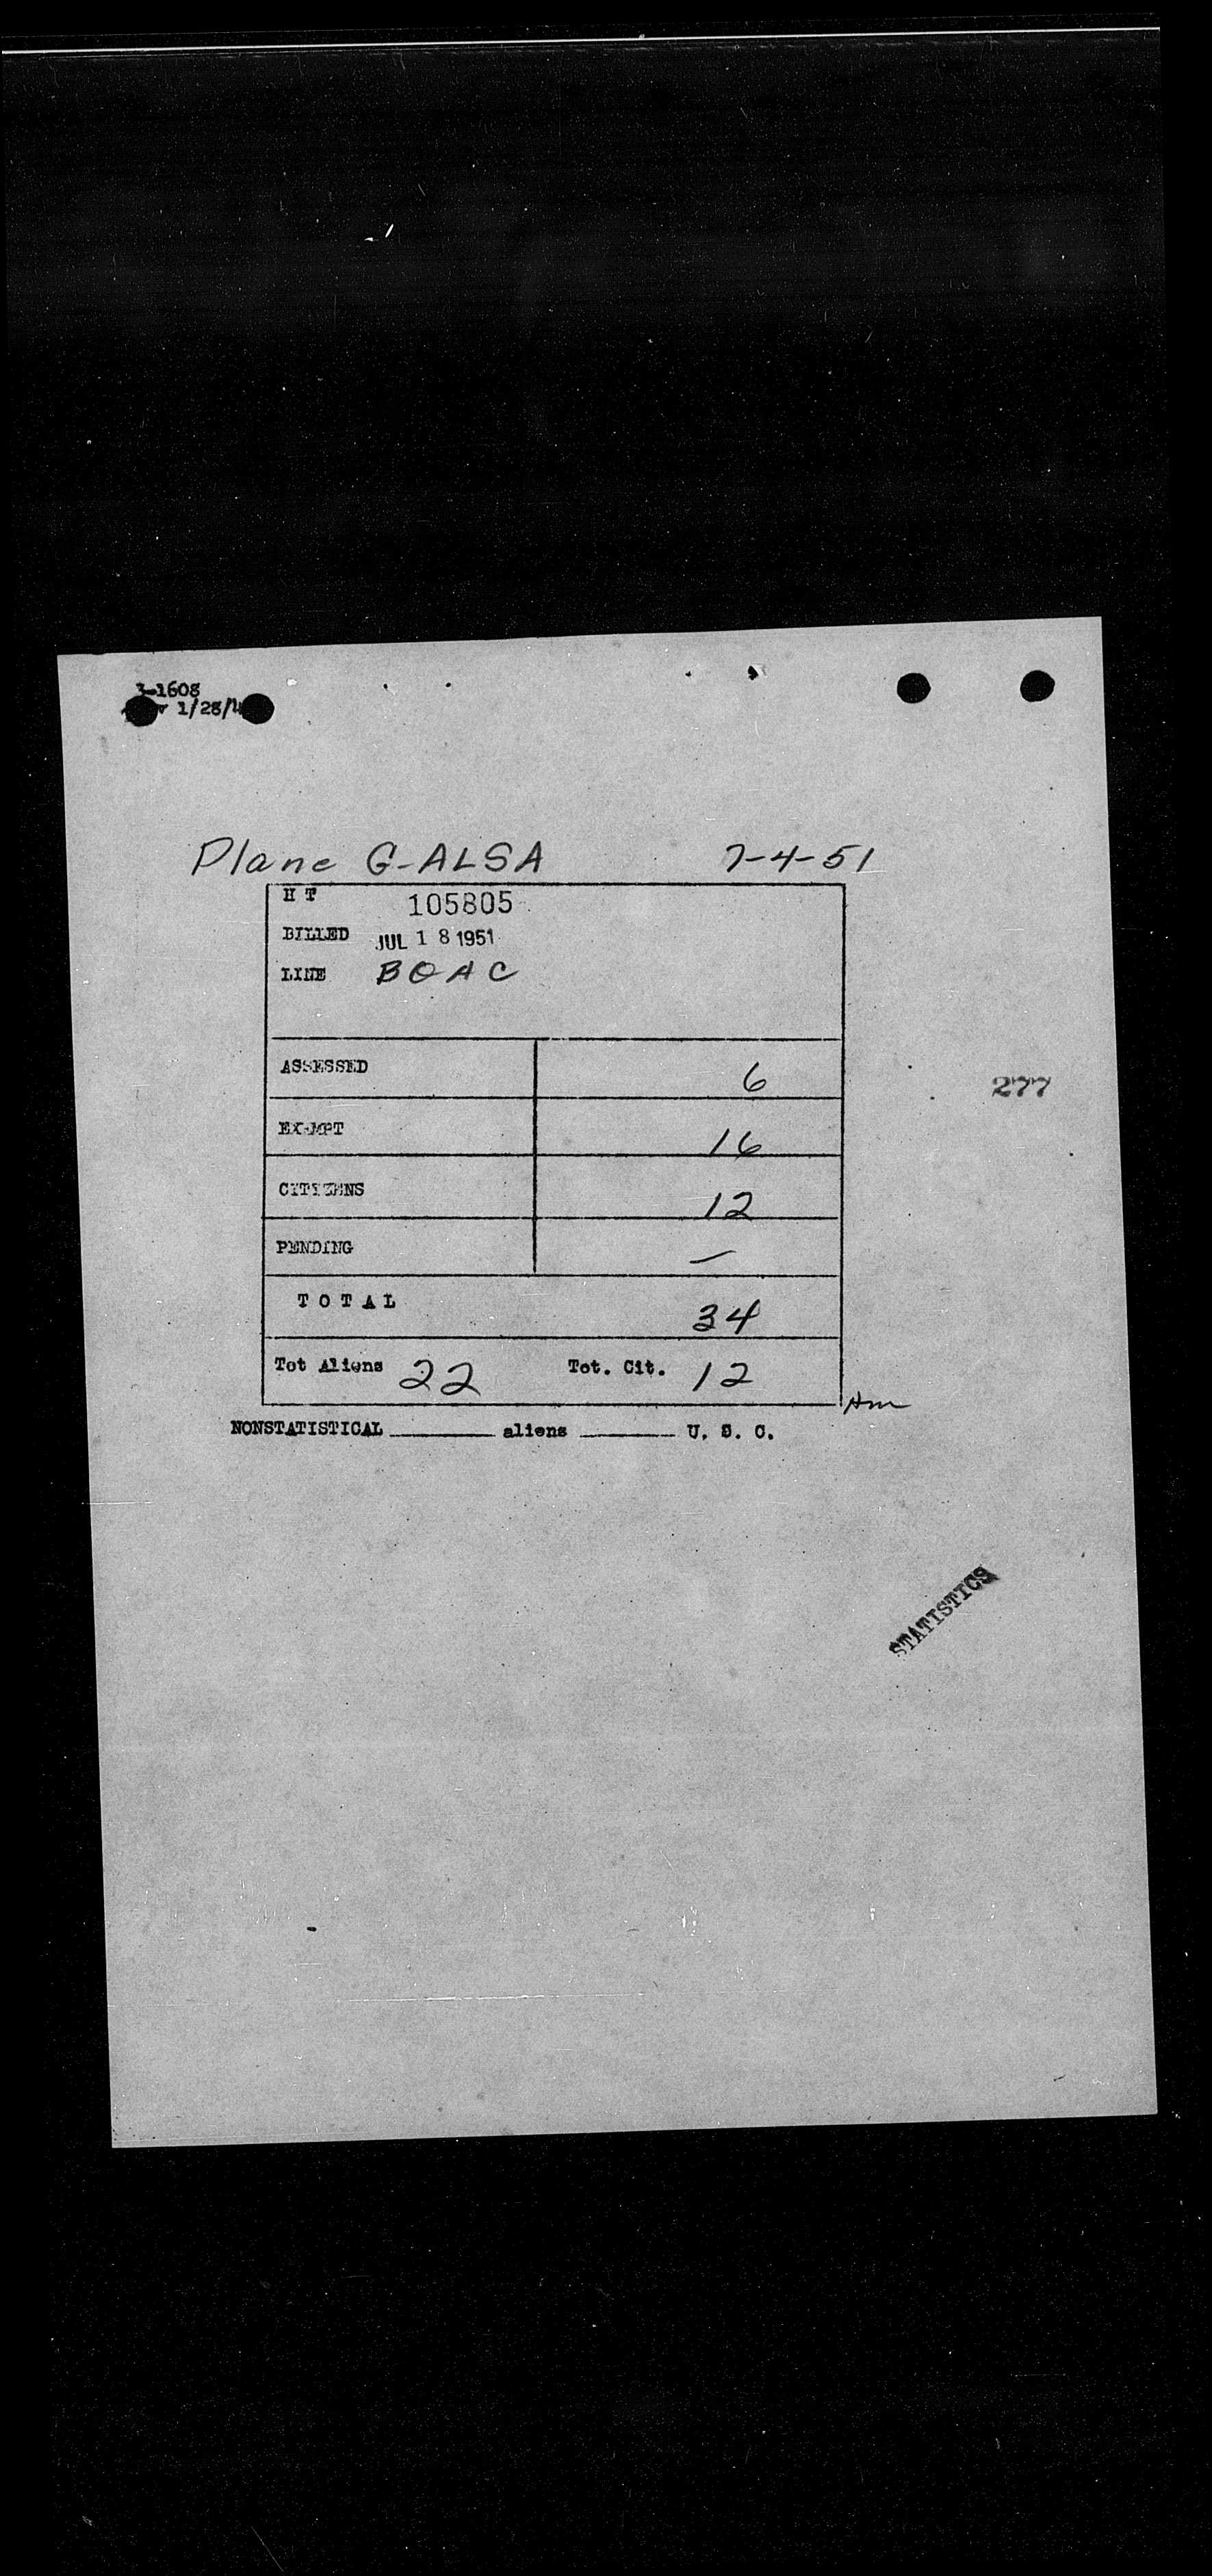 3-1608
1/28/4
Plane G-ALSA 7-4-51
H T 105805
BILLED JUL 18 1951
LINE BOAC
ASSESSED 6
277
EXEMPT 16
CITIZENS 12
PENDING —
TOTAL 34
Tot Aliens 22 Tot. Cit. 12
NONSTATISTICAL ________ aliens ________ U. S. C.
STATISTICS